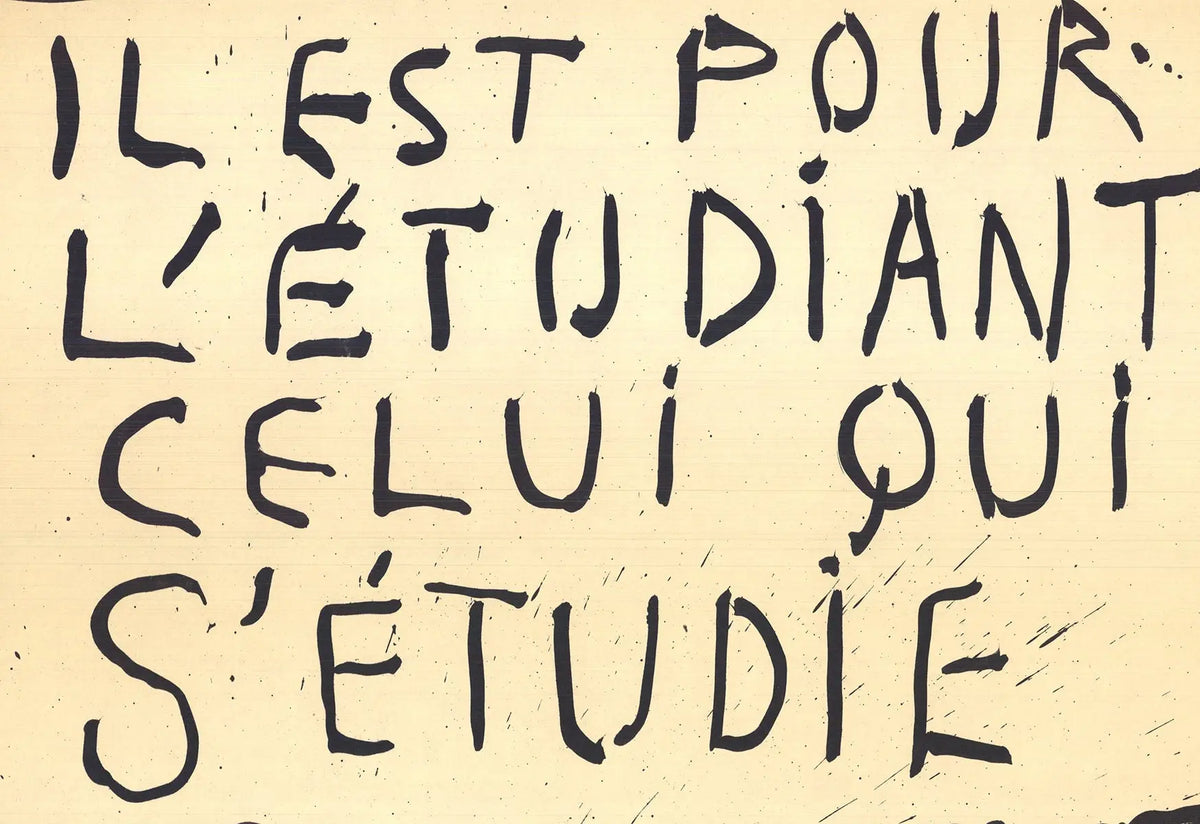 IL EST POUR
L'ÉTUDIANT
CELUI QUI
S'ÉTUDIE